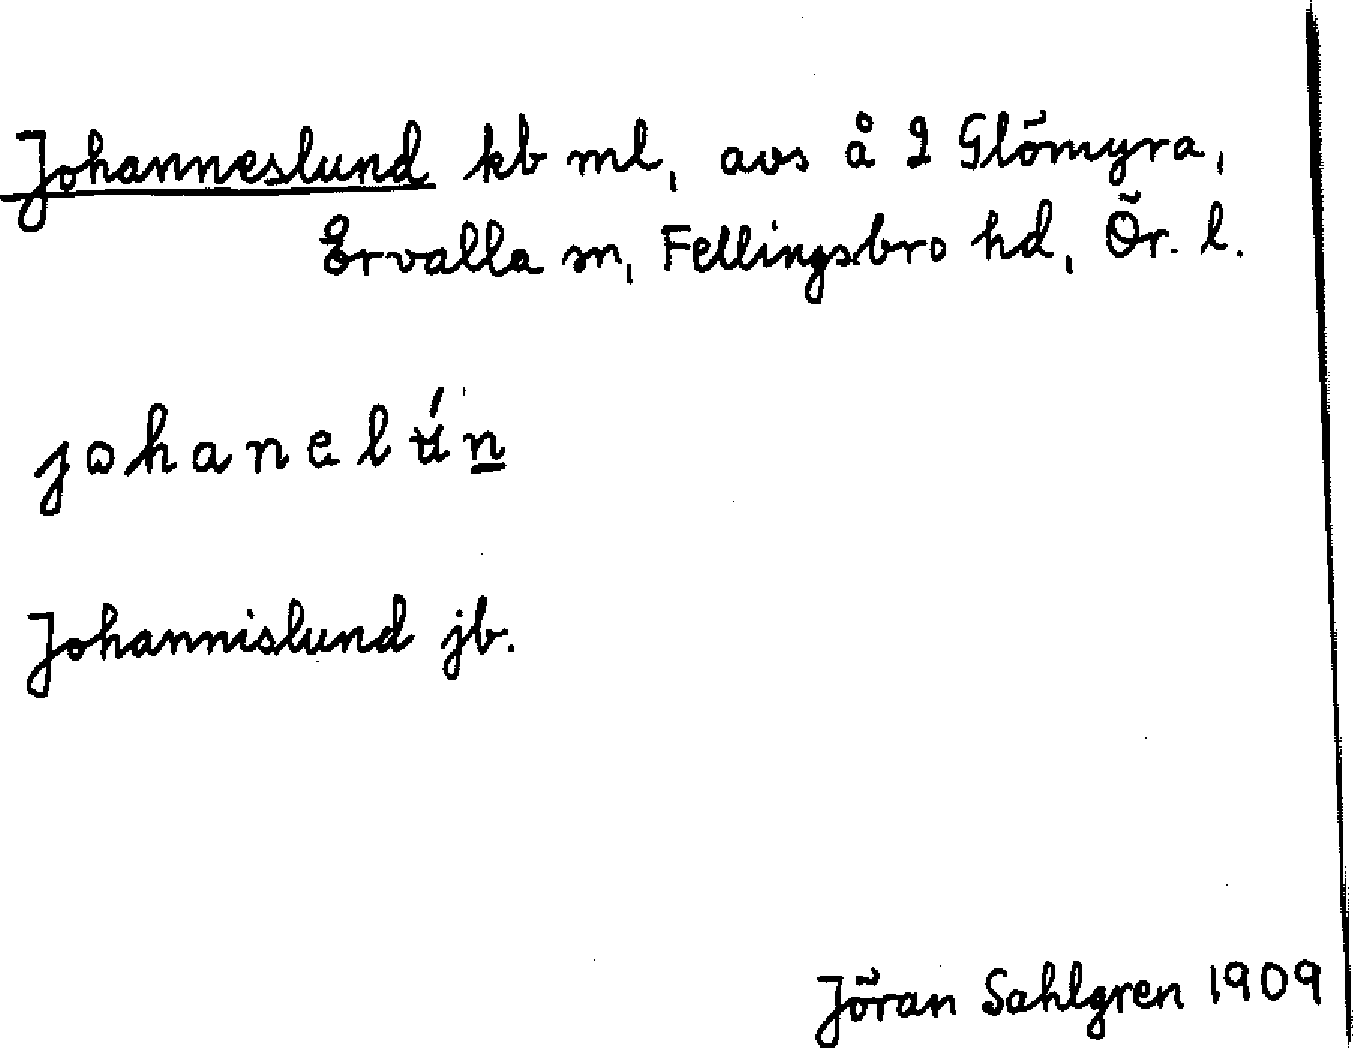 Johanneslund kb ml, avs å 2 Glömyra,
Ervalla sn, Fellingsbro hd, Ör. l.
johanelún
Johannislund jb.
Jöran Sahlgren 1909